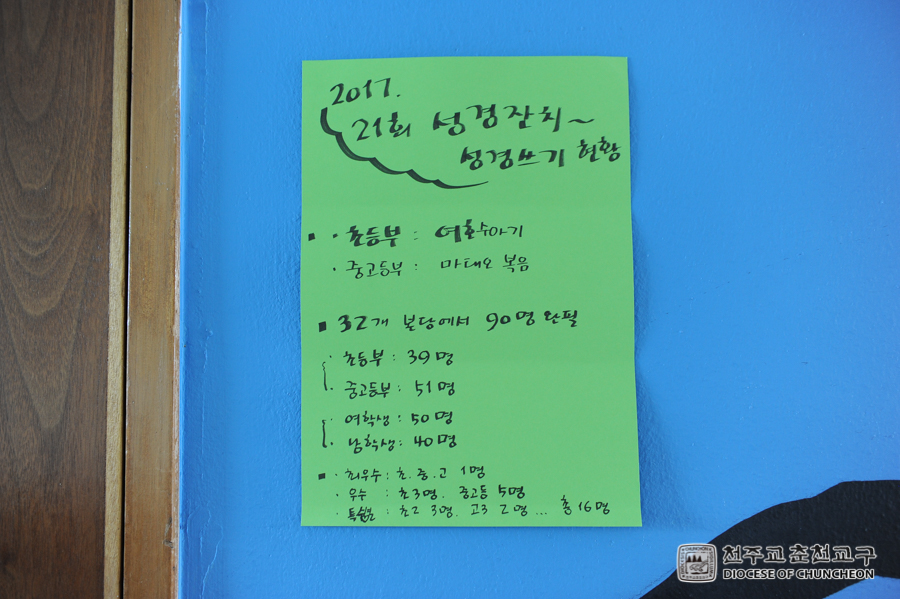 2017.
21회 성경잔치~
성경쓰기 현황
■ · 초등부 : 여호수아기
· 중고등부 : 마태오 복음
■ 32개 본당에서 90명 완필
· 초등부 : 39명
· 중고등부 : 51명
· 여학생 : 50명
· 남학생 : 40명
■ · 최우수 : 초. 중. 고 1명
· 우수 : 초3명. 중고등 5명
· 특별 : 초2 3명. 고3 2명... 총 16명
천주교 춘천교구
DIOCESE OF CHUNCHEON